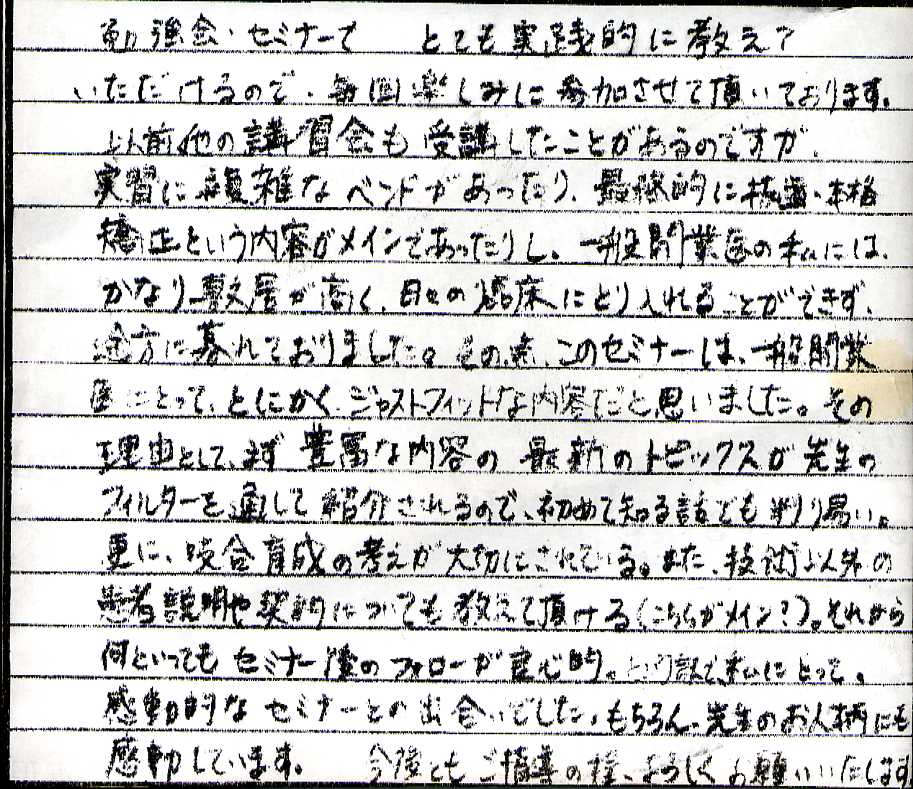 勉強会・セミナーで とても実践的に教えて
いただけるので、毎回楽しみに参加させて頂いております。
以前他の講習会も受講したことがあるのですが、
実習に複雑なベンドがあったり、最終的に抜歯・本格
矯正という内容がメインであったりし、一般開業医の私には、
かなり敷居が高く、日々の臨床にとり入れることができず、
途方に暮れておりました。その点、このセミナーは、一般開業
医にとって、とにかくジャストフィットな内容だと思いました。その
理由として、まず豊富な内容の最新のトピックスが先生の
フィルターを通して紹介されるので、初めて知る話でも判り易い。
更に、咬合育成の考えが大切にされている。また、技術以外の
患者説明や契約についても教えて頂ける(こちらがメイン?)。それから
何といってもセミナー後のフォローが良心的。という訳で、私にとって、
感動的なセミナーとの出会いでした。もちろん、先生のお人柄にも
感動しています。 今後ともご指導の程、よろしくお願いいたします